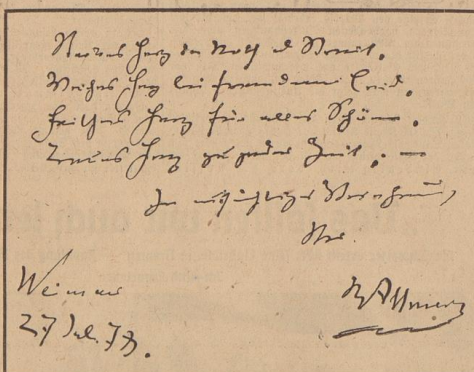 Starkes Herz in Noth u Streit,
Weiches Herz bei fremdem Leid,
Herz für alles Schöne,
Treues Herz zu jeder Zeit. —
In Verehrung
Ihr
Weimar
27 Jul. 73.